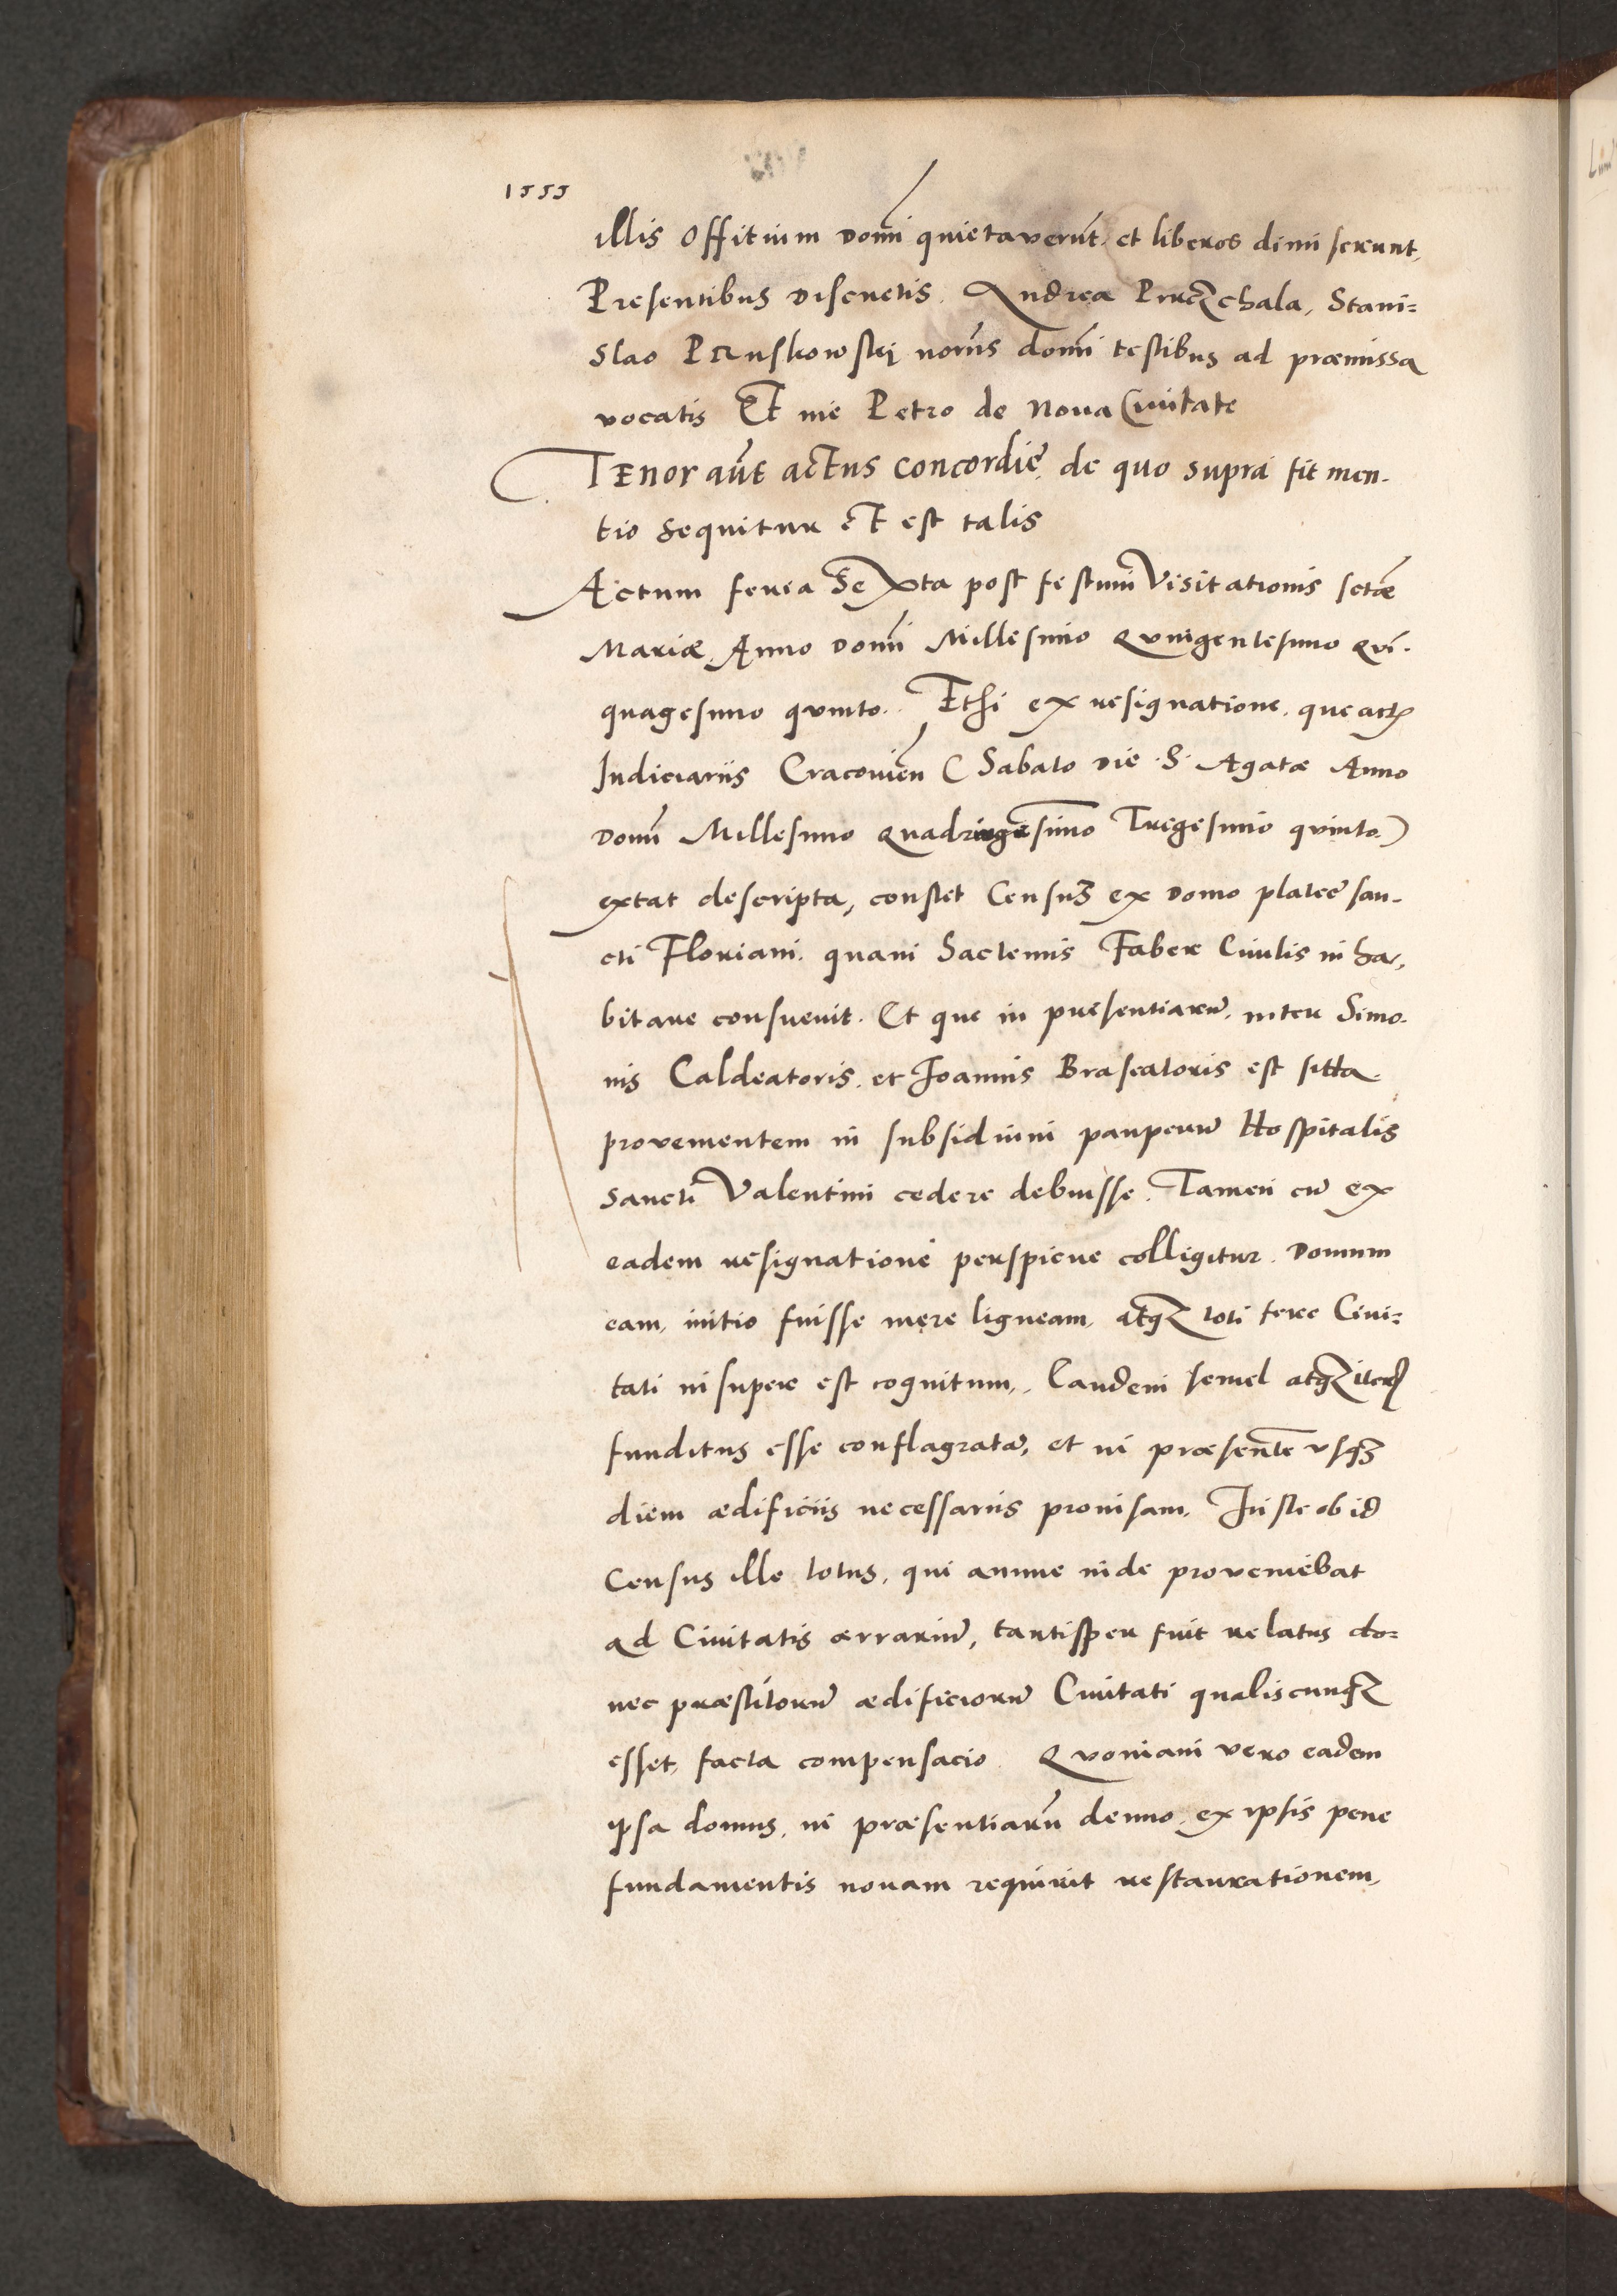 1555
illis Offitium Domĩ quietaverũt et liberos dimiserunt,
Presentibus Discretis. Andrea Stani=
slao norũs domĩ testibus ad præmissa
vocatis Et me Petro de Noua Ciuitate
Tenor aũt actus concordie, de quo supra fit men.
tio sequitur et est talis
Actum feria Sexta post festum Visitationis sctæ
Mariæ Anno Domĩ Millesimo Quingentesimo Quĩ.
quagesimo quinto. Etsi ex resignatione, que
Judiciariis Cracouieñ (Sabato Die .S. Agatæ Anno
Domĩ Millesimo Quadringesimo Tregesimo quinto)
extat descripta, constet Censũ ex Domo platee san.
cti Floriani quam Faber Ciuilis in ha.
bitare consueuit. Et que in presentiarũ, inter Simo.
nis Caldeatoris, et Joannis Braseatoris est sitta
prouenientem in subsidium pauperũ Hospitalis
Sancti Valentini cedere debuisse. Tamen cũ ex
eadem resignatione perspicue colligitur. Domum
eam, initio fuisse mere ligneam, atqʒ toti fere Ciui=
tati insuper est cognitum, Eandem semel atqʒ
funditus esse conflagratã, et in præsentẽ vsqʒ
diem ædificiis necessariis prouisam. Juste ob id
Census ille totus, qui annue inde proueniebat
ad Ciuitatis ærrariũ, tantisper fuit relatus do=
nec præstitorũ ædificiorũ Ciuitati qualiscunqʒ
esset, facta compensacio Quoniam vero eadem
ipsa domus, in præsentiarũ denuo, ex ipsis pene
fundamentis nouam requirit restaurationem,